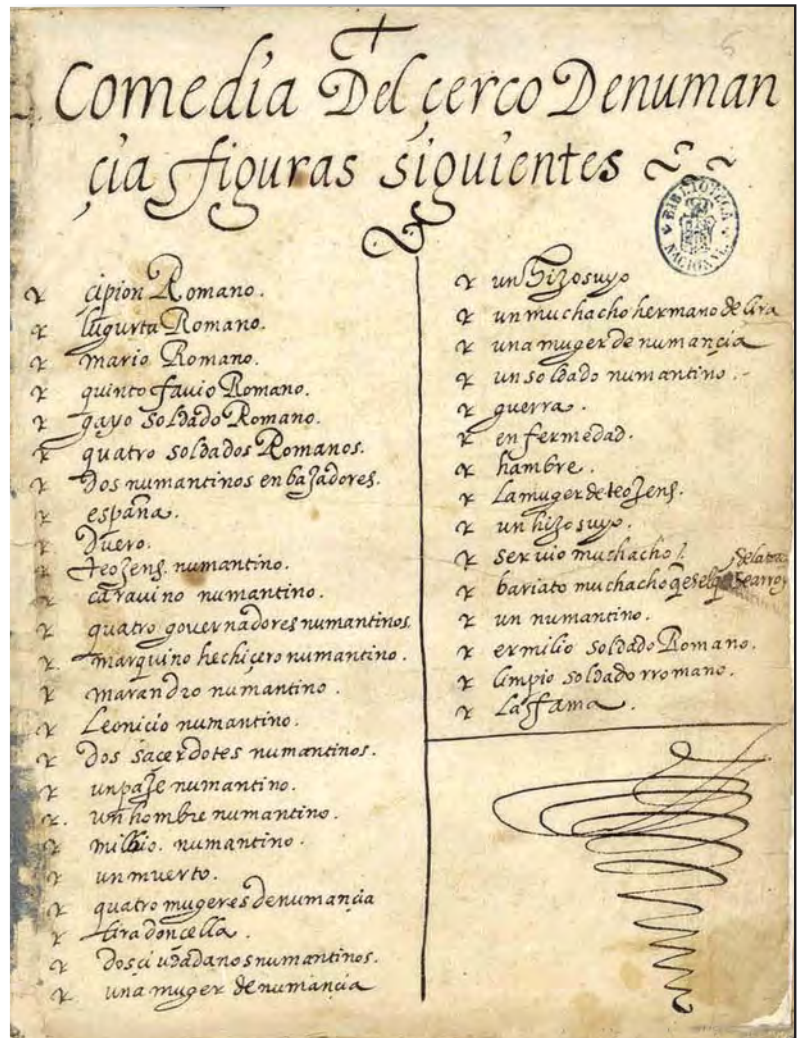 Comedia Del çerco Denuman
çia figuras siguientes
BIBLIOTECA NACIONAL
çipion Romano.
Iugurta Romano.
mario Romano.
quinto favio Romano.
gayo soldado Romano.
quatro soldados Romanos.
Dos numantinos enbajadores.
españa.
Duero.
teojens. numantino.
caravino numantino.
quatro governadores numantinos.
marquino hechiçero numantino.
marandro numantino.
Leonicio numantino.
Dos sacerdotes numantinos.
un paje numantino.
un hombre numantino.
numantino.
un muerto.
quatro mugeres denumançia
lira donçella.
dos ciudadanos numantinos.
una muger de numançia
un hijo suyo
un muchacho hermano de lira
una muger de numançia
un soldado numantino.
guerra.
enfermedad.
hambre.
La muger de teojens.
un hijo suyo.
servio muchacho
bariato muchacho
un numantino.
ermilio soldado Romano.
limpio soldado rromano.
La fama.